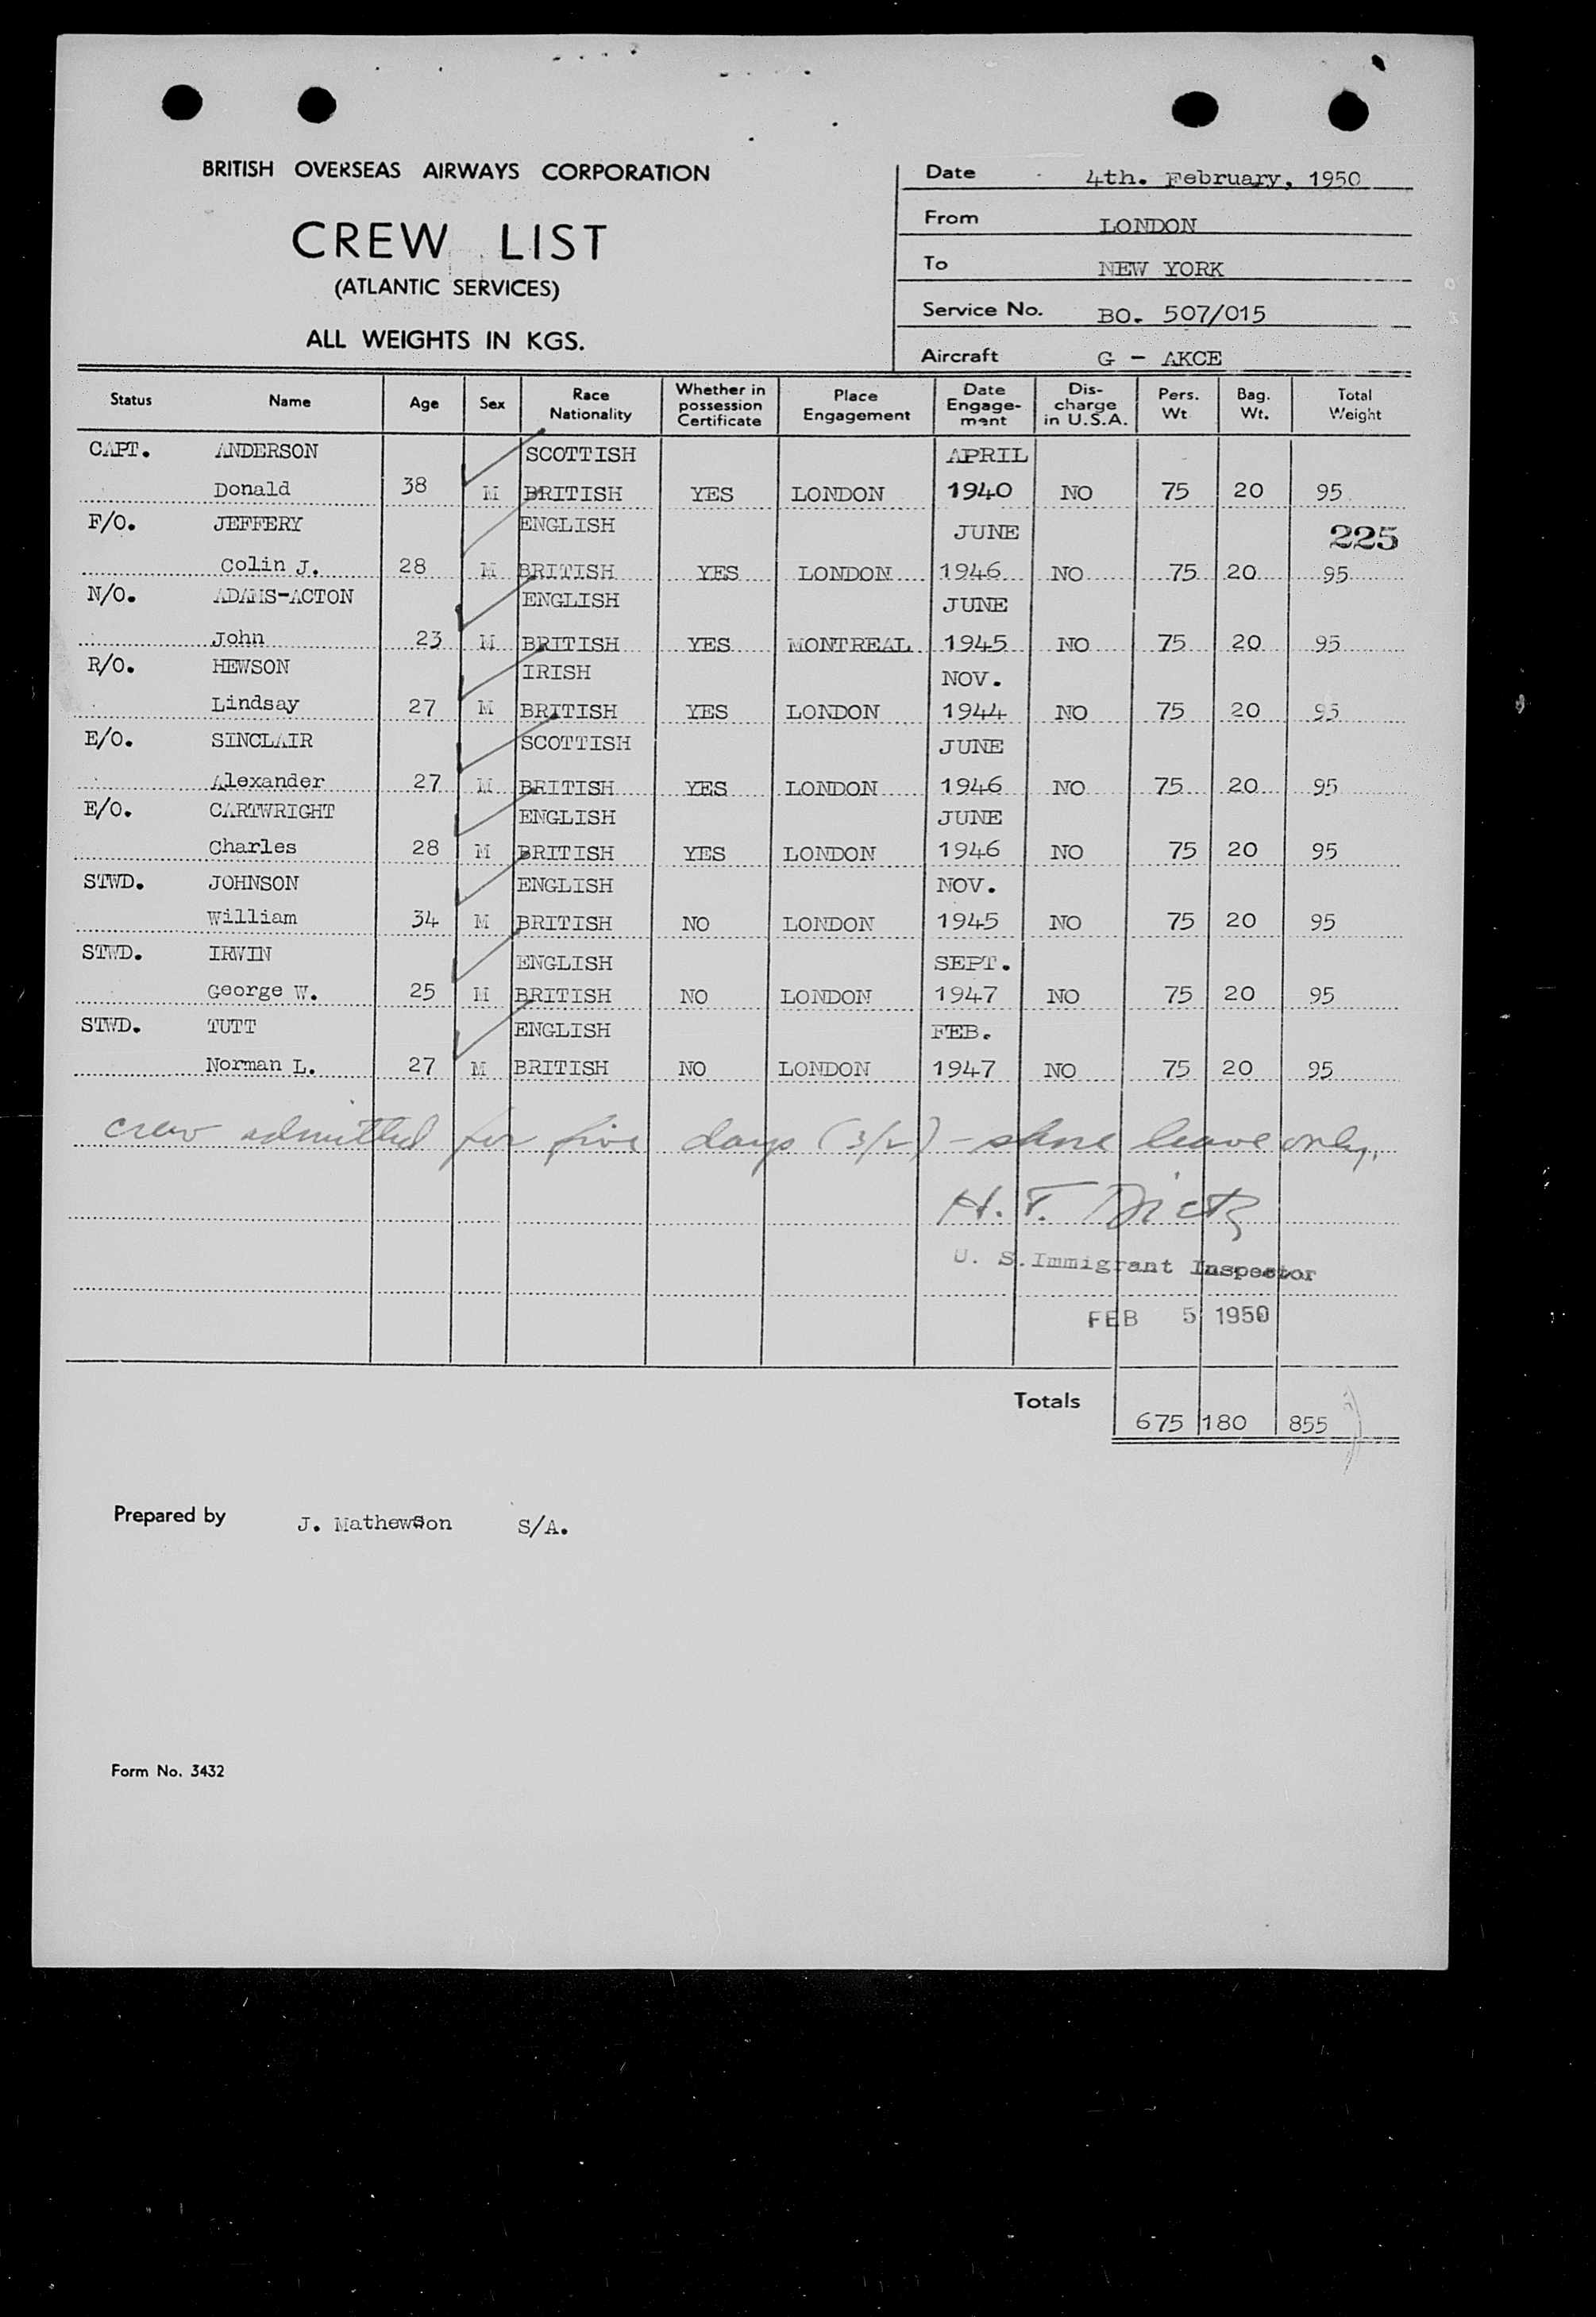 BRITISH OVERSEAS AIRWAYS CORPORATION
CREW LIST
(ATLANTIC SERVICES)
ALL WEIGHTS IN KGS.
Date 4th. February, 1950
From LONDON
To NEW YORK
Service No. BO. 507/015
Aircraft G - AKCE
Status Name Age Sex Race Nationality Whether in possession Certificate Place Engagement Date Engage-ment Dis-charge in U.S.A. Pers. Wt. Bag. Wt. Total Weight
CAPT. ANDERSON SCOTTISH APRIL
Donald 38 M BRITISH YES LONDON 1940 NO 75 20 95
F/O. JEFFERY ENGLISH JUNE 225
Colin J. 28 M BRITISH YES LONDON 1946 NO 75 20 95
N/O. ADAMS-ACTON ENGLISH JUNE
John 23 M BRITISH YES MONTREAL 1945 NO 75 20 95
R/O. HEWSON IRISH NOV.
Lindsay 27 M BRITISH YES LONDON 1944 NO 75 20 95
E/O. SINCLAIR SCOTTISH JUNE
Alexander 27 M BRITISH YES LONDON 1946 NO 75 20 95
E/O. CARTWRIGHT ENGLISH JUNE
Charles 28 M BRITISH YES LONDON 1946 NO 75 20 95
STWD. JOHNSON ENGLISH NOV.
William 34 M BRITISH NO LONDON 1945 NO 75 20 95
STWD. IRWIN ENGLISH SEPT.
George W. 25 M BRITISH NO LONDON 1947 NO 75 20 95
STWD. TUTT ENGLISH FEB.
Norman L. 27 M BRITISH NO LONDON 1947 NO 75 20 95
crew admitted for five days (3/2) - shore leave only.
H. F. Dietz
U. S. Immigrant Inspector
FEB 5 1950
Totals 675 180 855
Prepared by J. Mathewson S/A.
Form No. 3432